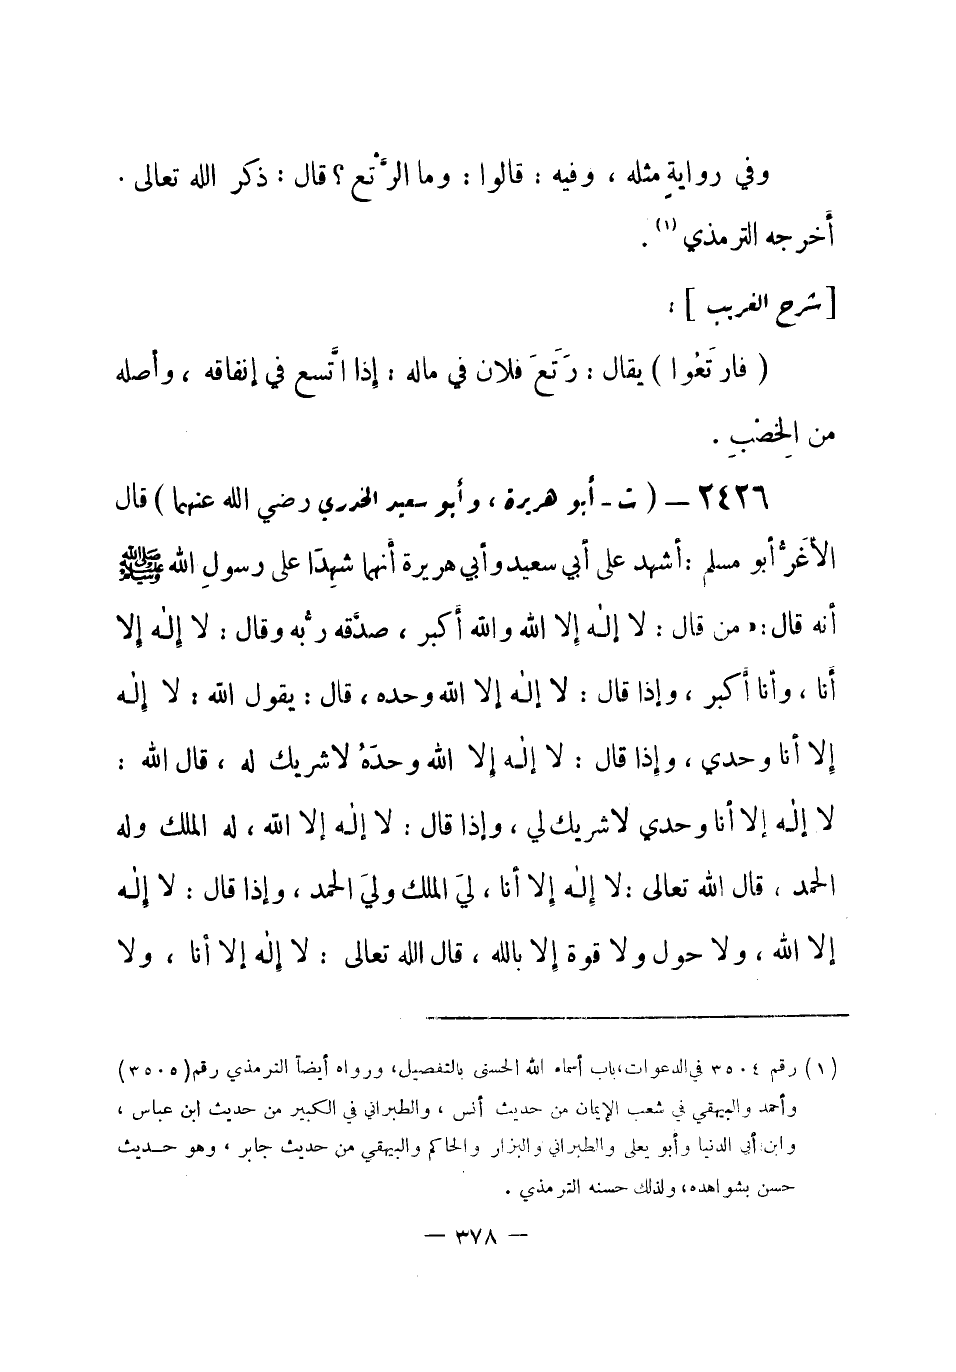 وفي روايةٍ مثله ، وفيه : قالوا : وما الرَّتْع ؟ قال : ذكر الله تعالى .
أَخرجه الترمذي (١) .
[ شرح الغريب ] :
( فارتَعُوا ) يقال : رَتَعَ فلان في ماله : إذا اتَّسع في إنفاقه ، وأصله
من الخِصْبِ .
٢٤٢٦ — ( ت - أبو هريرة ، وأبو سعيد الخدري رضي الله عنهما ) قال
الأَغَرُّ أبو مسلم : أشهد على أبي سعيد وأبي هريرة أنهما شهِدَا على رسولِ الله ﷺ
أنه قال : « من قال : لا إلٰه إلا الله والله أكبر ، صدَّقه ربُّه وقال : لا إِلٰه إلا
أَنا ، وأنا أَكبر ، وإذا قال : لا إلٰه إلا الله وحده ، قال : يقول الله : لا إِلٰه
إِلا أنا وحدي ، وإِذا قال : لا إلٰه إِلا الله وحدَهُ لا شريك له ، قال الله :
لا إلٰه إلا أنا وحدي لا شريك لي ، وإذا قال : لا إلٰه إلا الله ، له الملك وله
الحمد ، قال الله تعالى : لا إِلٰه إِلا أنا ، ليَ الملك وليَ الحمد ، وإذا قال : لا إِلٰه
إلا الله ، ولا حول ولا قوة إلا بالله ، قال الله تعالى : لا إِلٰه إلا أنا ، ولا
(١) رقم ٣٥٠٤ في الدعوات ، باب أسماء الله الحسنى بالتفصيل ، ورواه أيضاً الترمذي رقم (٣٥٠٥)
وأحمد والبيهقي في شعب الإيمان من حديث أنس ، والطبراني في الكبير من حديث ابن عباس ،
وابن أبي الدنيا وأبو يعلى والطبراني والبزار والحاكم والبيهقي من حديث جابر ، وهو حـديث
حسن بشواهده ، ولذلك حسنه الترمذي .
— ٣٧٨ —